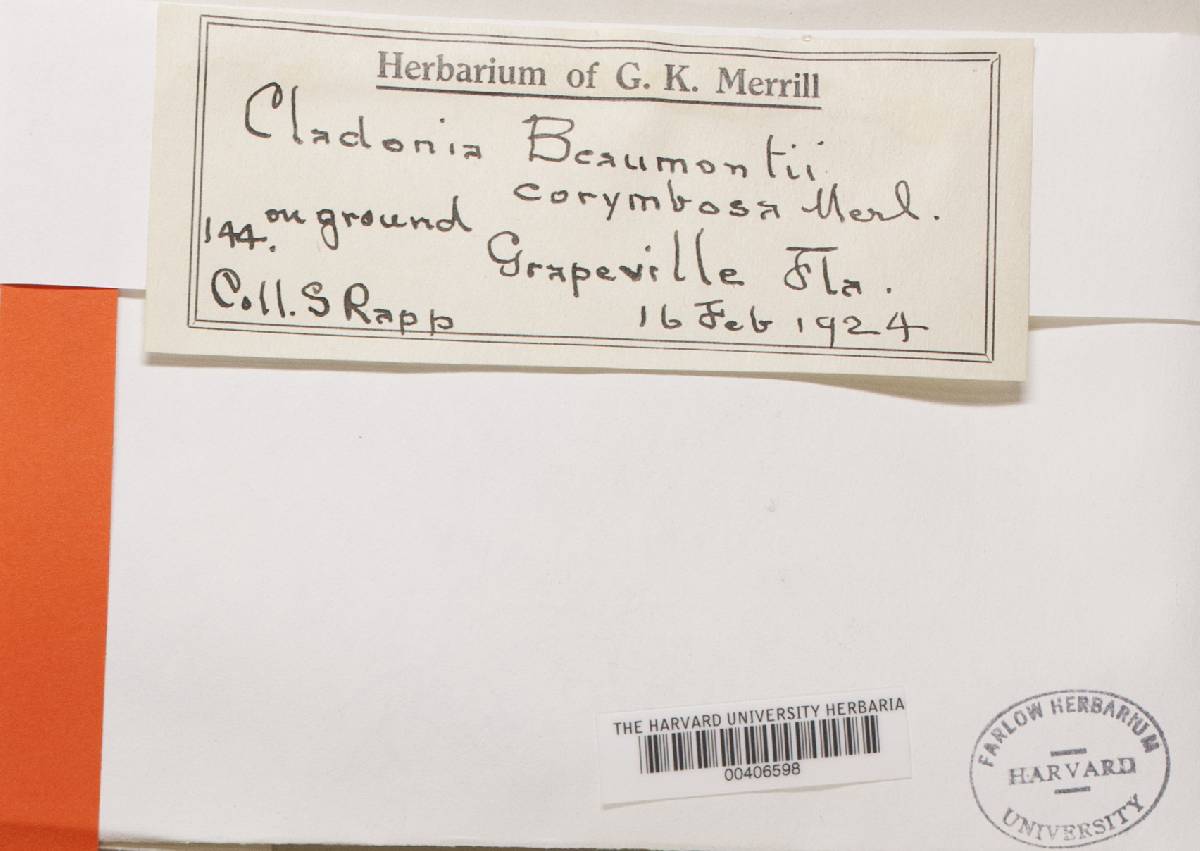 Herbarium of G. K. Merrill
Cladonia Beaumontii
corymbosa Merl.
144. on ground
Grapeville Fla.
Coll. S Rapp 16 Feb 1924
THE HARVARD UNIVERSITY HERBARIA
00406598
FARLOW HERBARIUM
HARVARD
UNIVERSITY